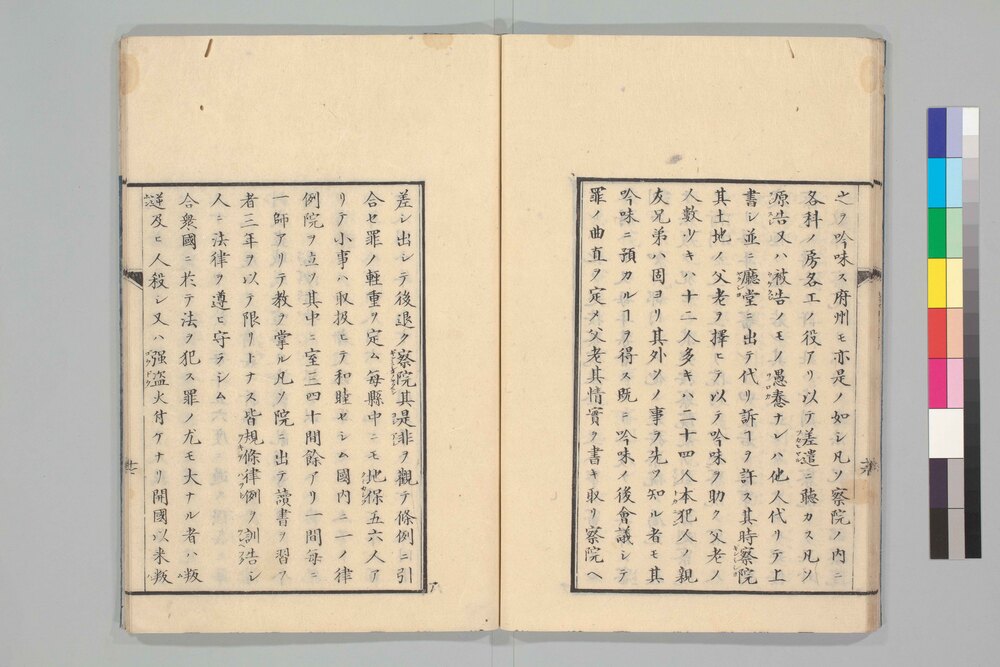 之ヲ吟味ス府州モ亦是ノ如シ凡ソ察院ノ内ニ
各科ノ房各工ノ役アリ以テ差遣ニ聽カス凡ソ
原告又ハ被告ノモノ愚惷ナレハ他人代リテ上
書シ並ニ廳堂ニ出テ代リ訴ヿヲ許ス其時察院
其土地ノ父老ヲ擇ヒテ以テ吟味ヲ助ク父老ノ
人數少キハ十二人多キハ二十四人本犯人ノ親
友兄弟ハ固ヨリ其外ソノ事ヲ先ツ知ル者モ其
吟味ニ預カルヿヲ得ス既ニ吟味ノ後會議シテ
罪ノ曲直ヲ定メ父老其情實ヲ書キ取リ察院ヘ
差シ出シテ後退ク察院其是非ヲ觀テ條例ニ引
合セ罪ノ輕重ヲ定ム每縣中ニモ地保五六人ア
リテ小事ハ取扱ヒテ和睦セシム國内ニ一ノ律
例院ヲ立ツ其中ニ室三四十間餘アリ一間每ニ
一師アリテ教ヲ掌ル凡ソ院ニ出テ讀書ヲ習フ
者三年ヲ以テ限リトナス皆規條律例ヲ訓告シ
人ニ法律ヲ遵ヒ守ラシム
合衆國ニ於テ法ヲ犯ス罪ノ尤モ大ナル者ハ叛
逆及ヒ人殺シ又ハ强盗火付ケナリ開國以来叛